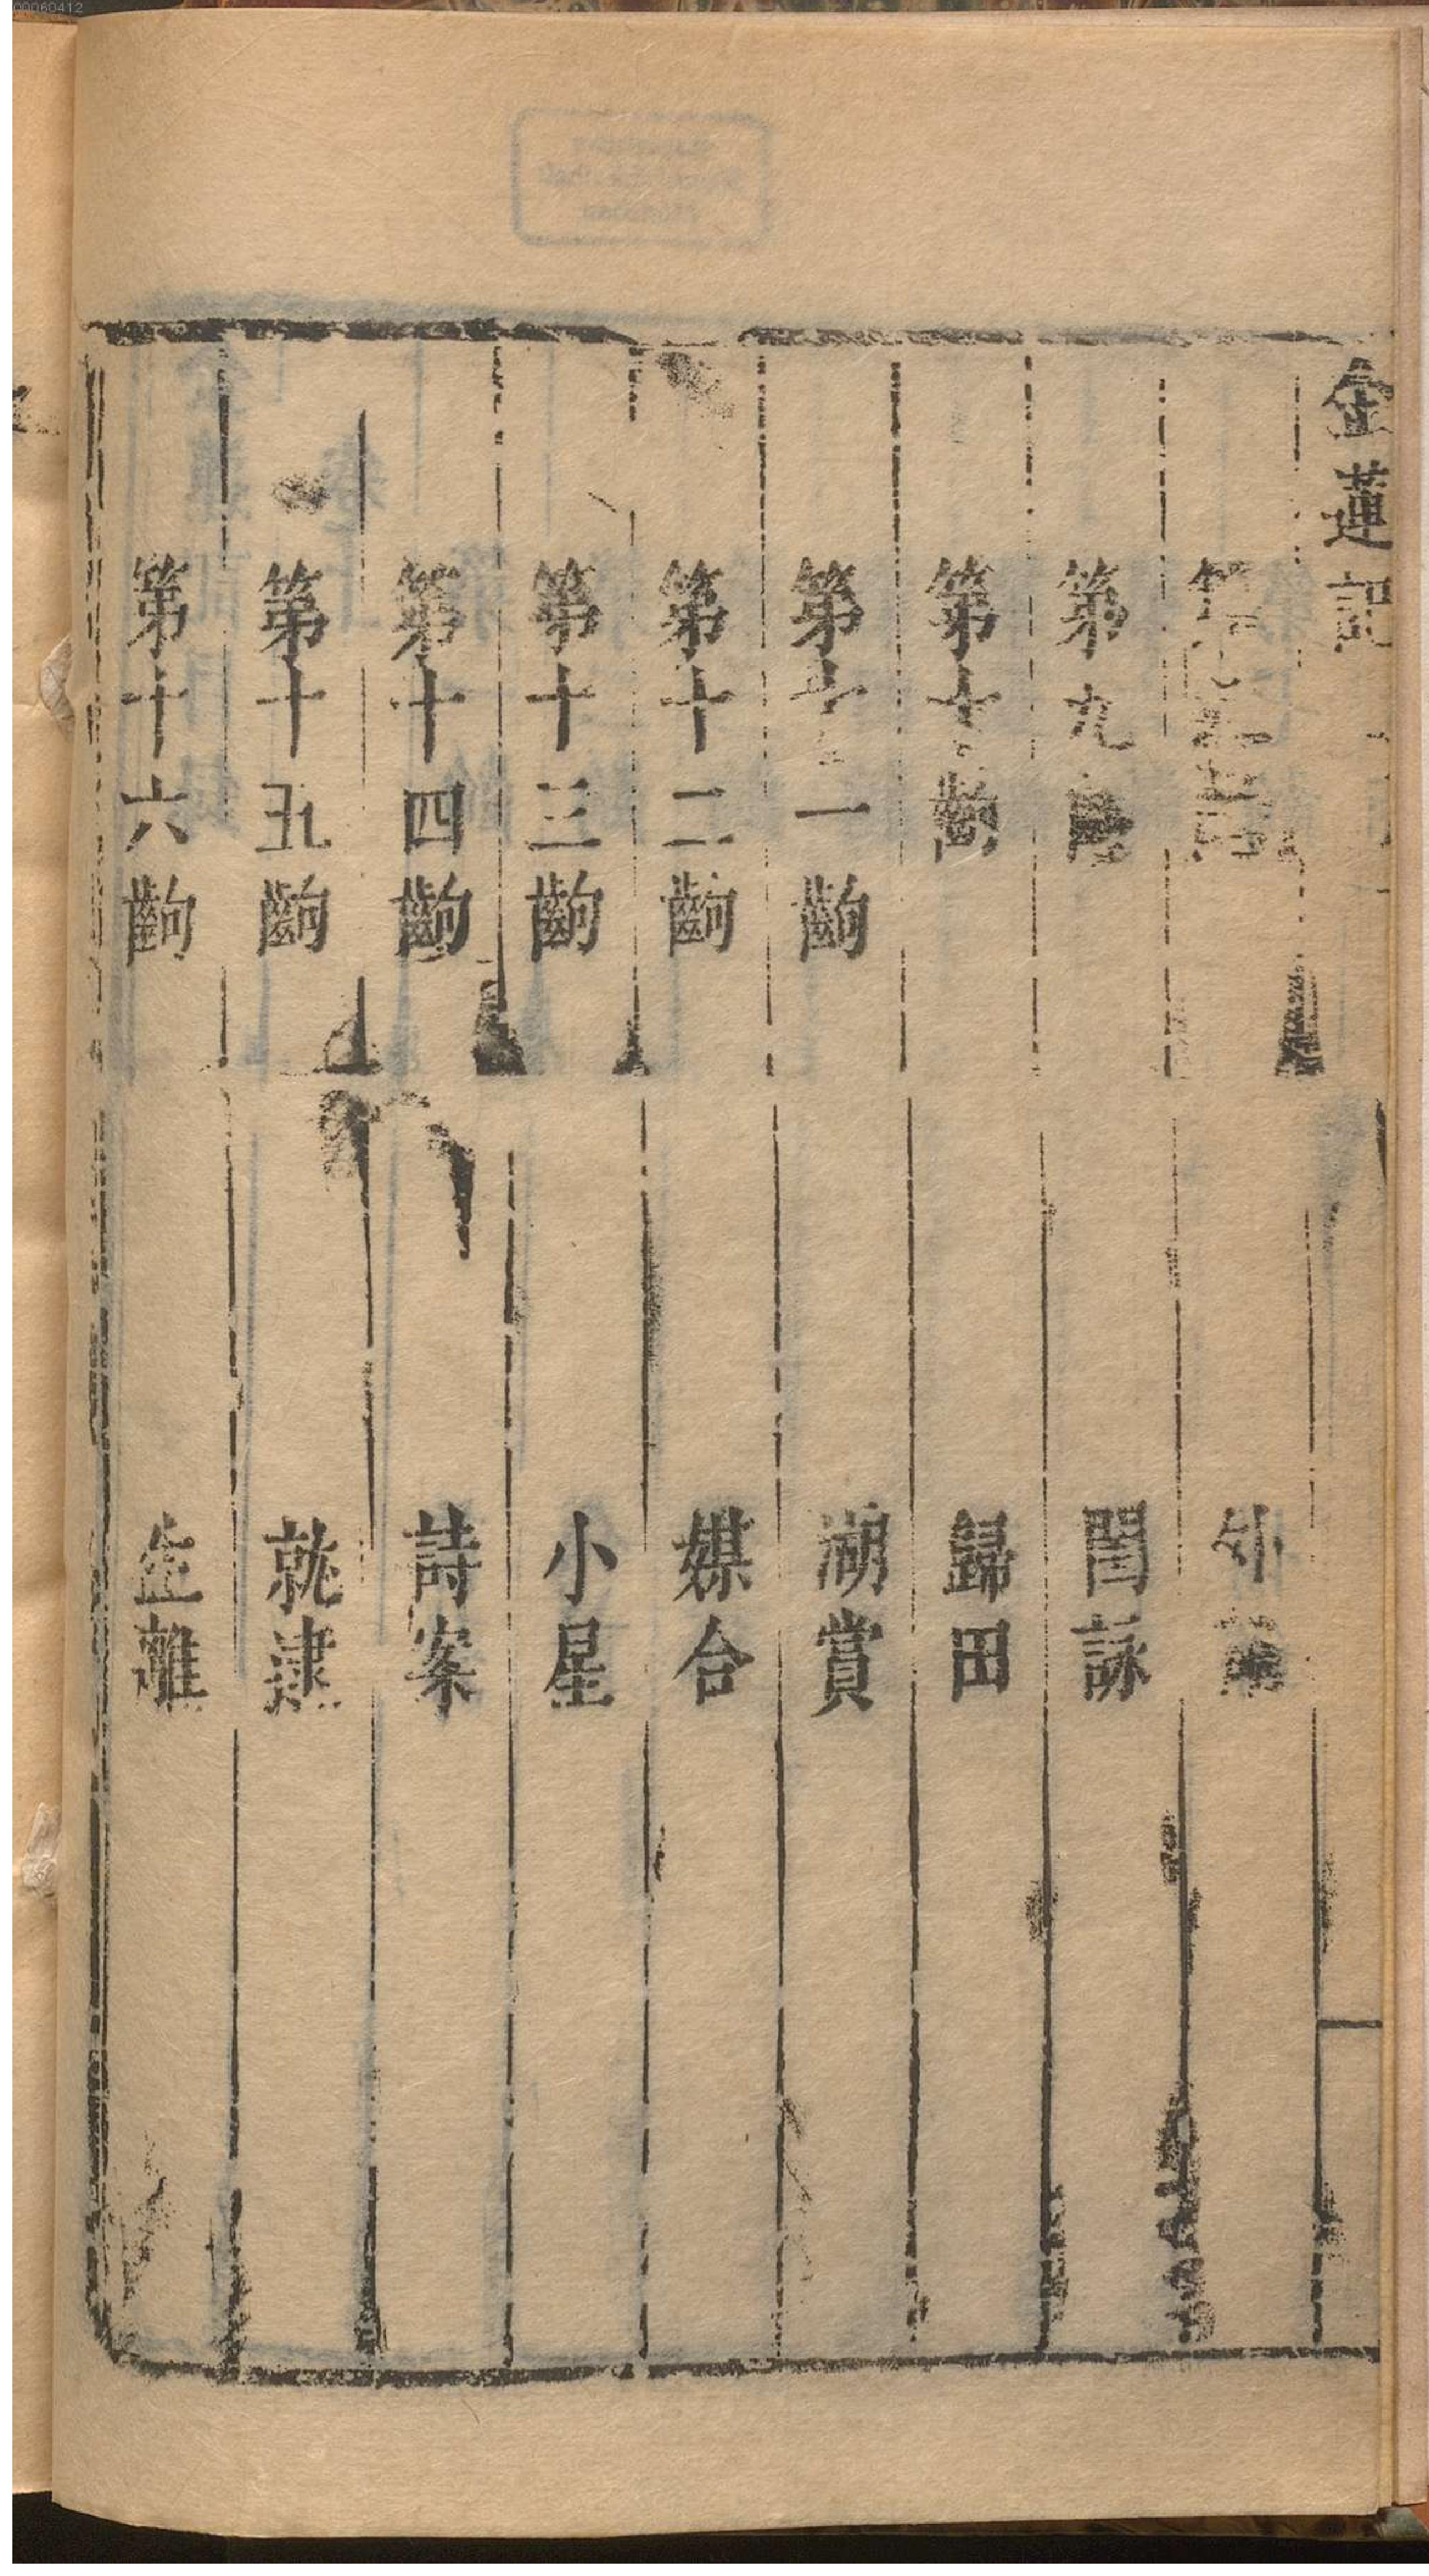 00060412
金蓮記
外
第九齣 閨詠
第十齣 歸田
第十一齣 湖賞
第十二齣 媒合
第十三齣 小星
第十四齣 詩案
第十五齣 就逮
第十六齣 生離